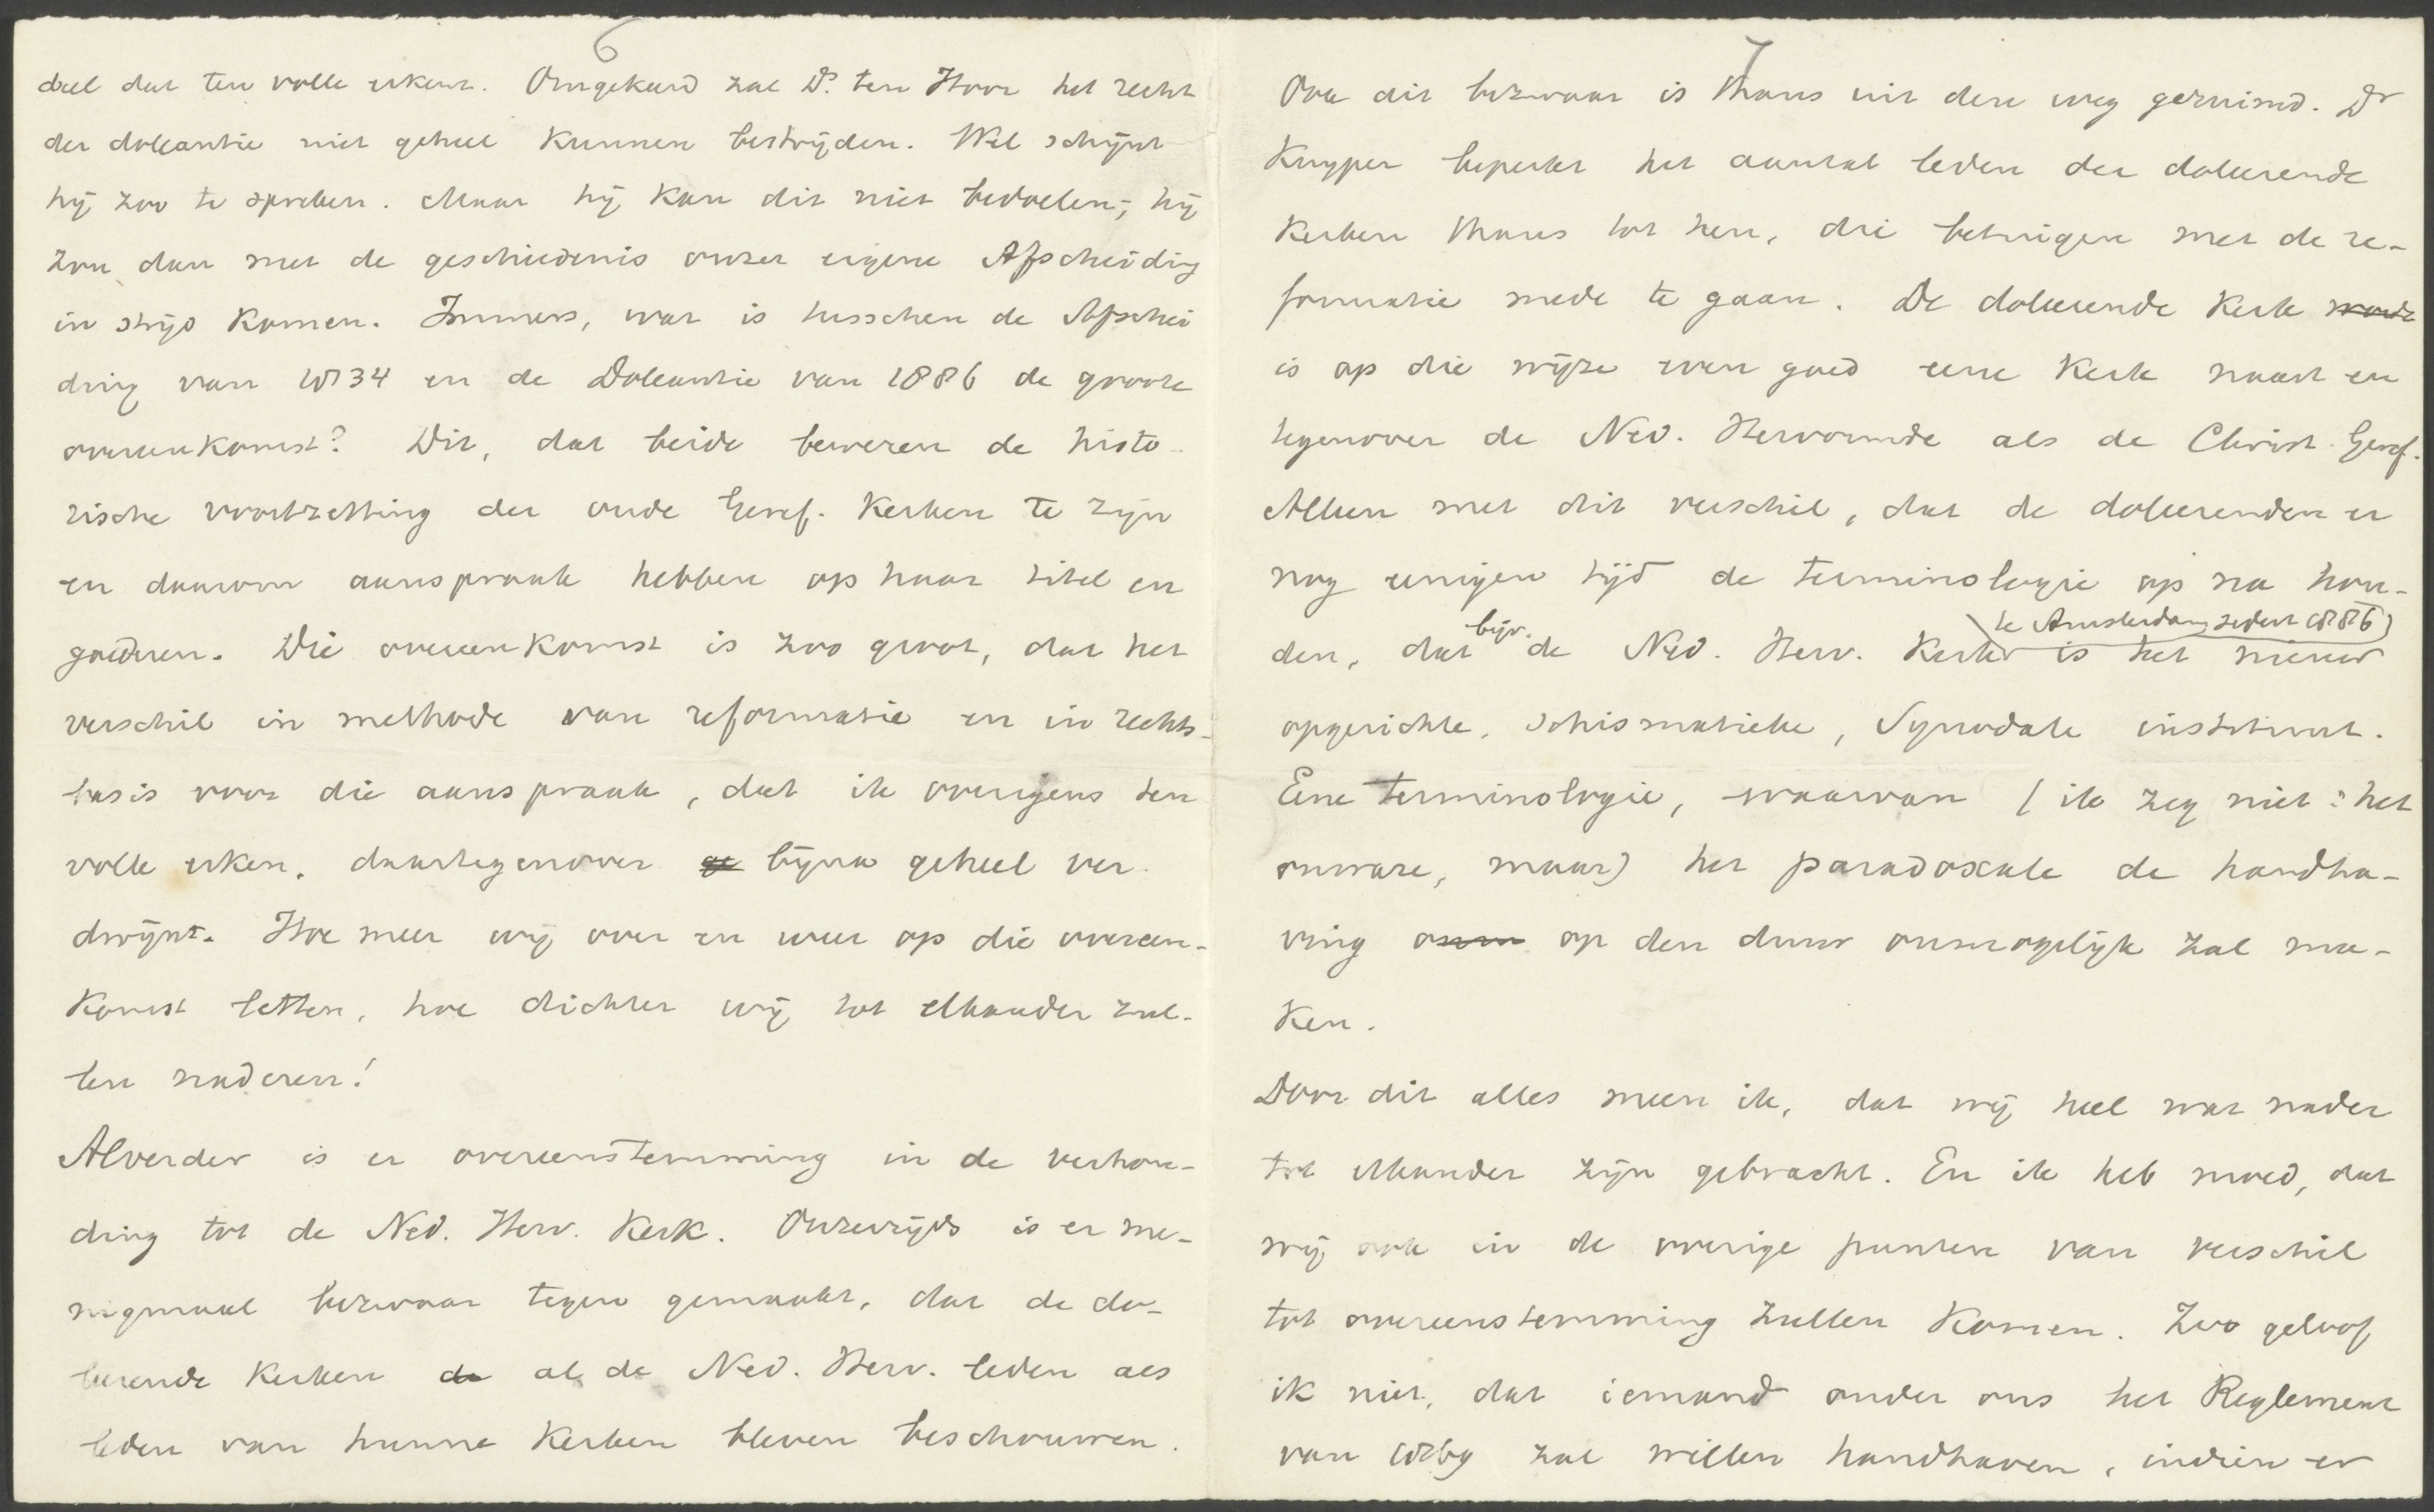 6
deel dat ten volle erkent. Omgekeerd zal Ds. ten Hoor het recht
der doleantie niet geheel kunnen bestrijden. Wel schijnt
hij zoo te spreken. Maar hij kan dit niet bedoelen; hij
zou dan met de geschiedenis onzer eigene Afscheiding
in strijd komen. Immers, wat is tusschen de Afschei
ding van 1834 en de Doleantie van 1886 de groote
overeenkomst? Dit, dat beide beweren de histo-
rische voortzetting der oude Geref. Kerken te zijn
en daarom aanspraak hebben op haar titel en
goederen. Die overeenkomst is zoo groot, dat het
verschil in methode van reformatie en in rechts-
basis voor die aanspraak, dat ik overigens ten
volle erken, daartegenover bijna geheel ver-
dwijnt. Hoe meer wij over en weer op die overeen-
komst letten, hoe dichter wij tot elkander zul-
len naderen!
Alverder is er overeenstemming in de verhou-
ding tot de Ned. Herv. Kerk. Onzerzijds is er me-
nigmaal bezwaar tegen gemaakt, dat de do-
leerende Kerken de al de Ned. Herv. leden als
leden van hunne Kerken bleven beschouwen.
7
Ook dit bezwaar is thans uit den weg geruimd. Dr
Kuyper beperkt het aantal leden der doleerende
Kerken thans tot hen, die betuigen met de re-
formatie mede te gaan. De doleerende Kerk
is op die wijze even goed eene Kerk naast en
tegenover de Ned. Hervormde als de Christ. Geref.
Alleen met dit verschil, dat de doleerenden er
nog eenigen tijd de terminologie op na hou-
den, dat bijv. de Ned. Herv. Kerk (te Amsterdam sedert 1886) is het nieuw
opgerichte, schismatieke, Synodale instituut.
Eene terminologie, waarvan (ik zeg niet: het
onware, maar) het paradoxale de handha-
ving op den duur onmogelijk zal ma-
ken.
Door dit alles meen ik, dat wij heel wat nader
tot elkander zijn gebracht. En ik heb moed, dat
wij ook in de overige punten van verschil
tot overeenstemming zullen komen. Zoo geloof
ik niet, dat iemand onder ons het Reglement
van 1869 zal willen handhaven, indien er